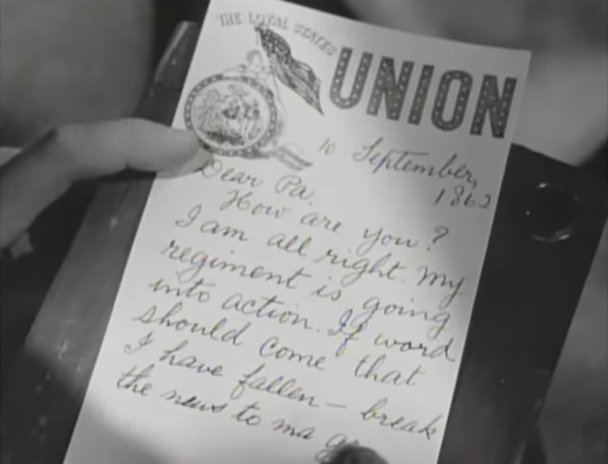 THE LOYAL STATES
UNION
10 September,
1862
Dear Pa,
How are you?
I am all right. My
regiment is going
into action. If word
should come that
I have fallen — break
the news to ma